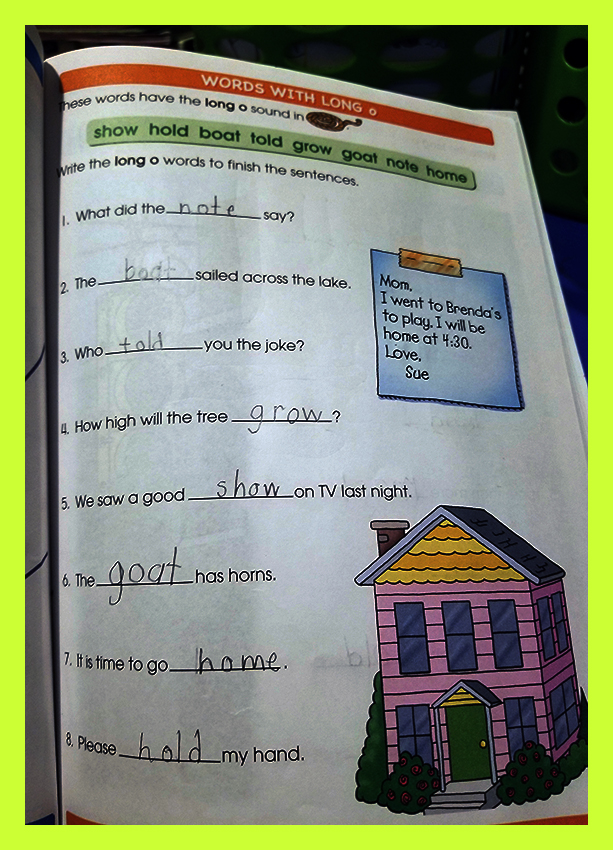 WORDS WITH LONG o
These words have the long o sound in
show hold boat told grow goat note home
Write the long o words to finish the sentences.
1. What did the note say?
2. The boat sailed across the lake.
Mom,
I went to Brenda's
to play. I will be
home at 4:30.
Love,
Sue
3. Who told you the joke?
4. How high will the tree grow?
5. We saw a good show on TV last night.
6. The goat has horns.
7. It is time to go home.
8. Please hold my hand.